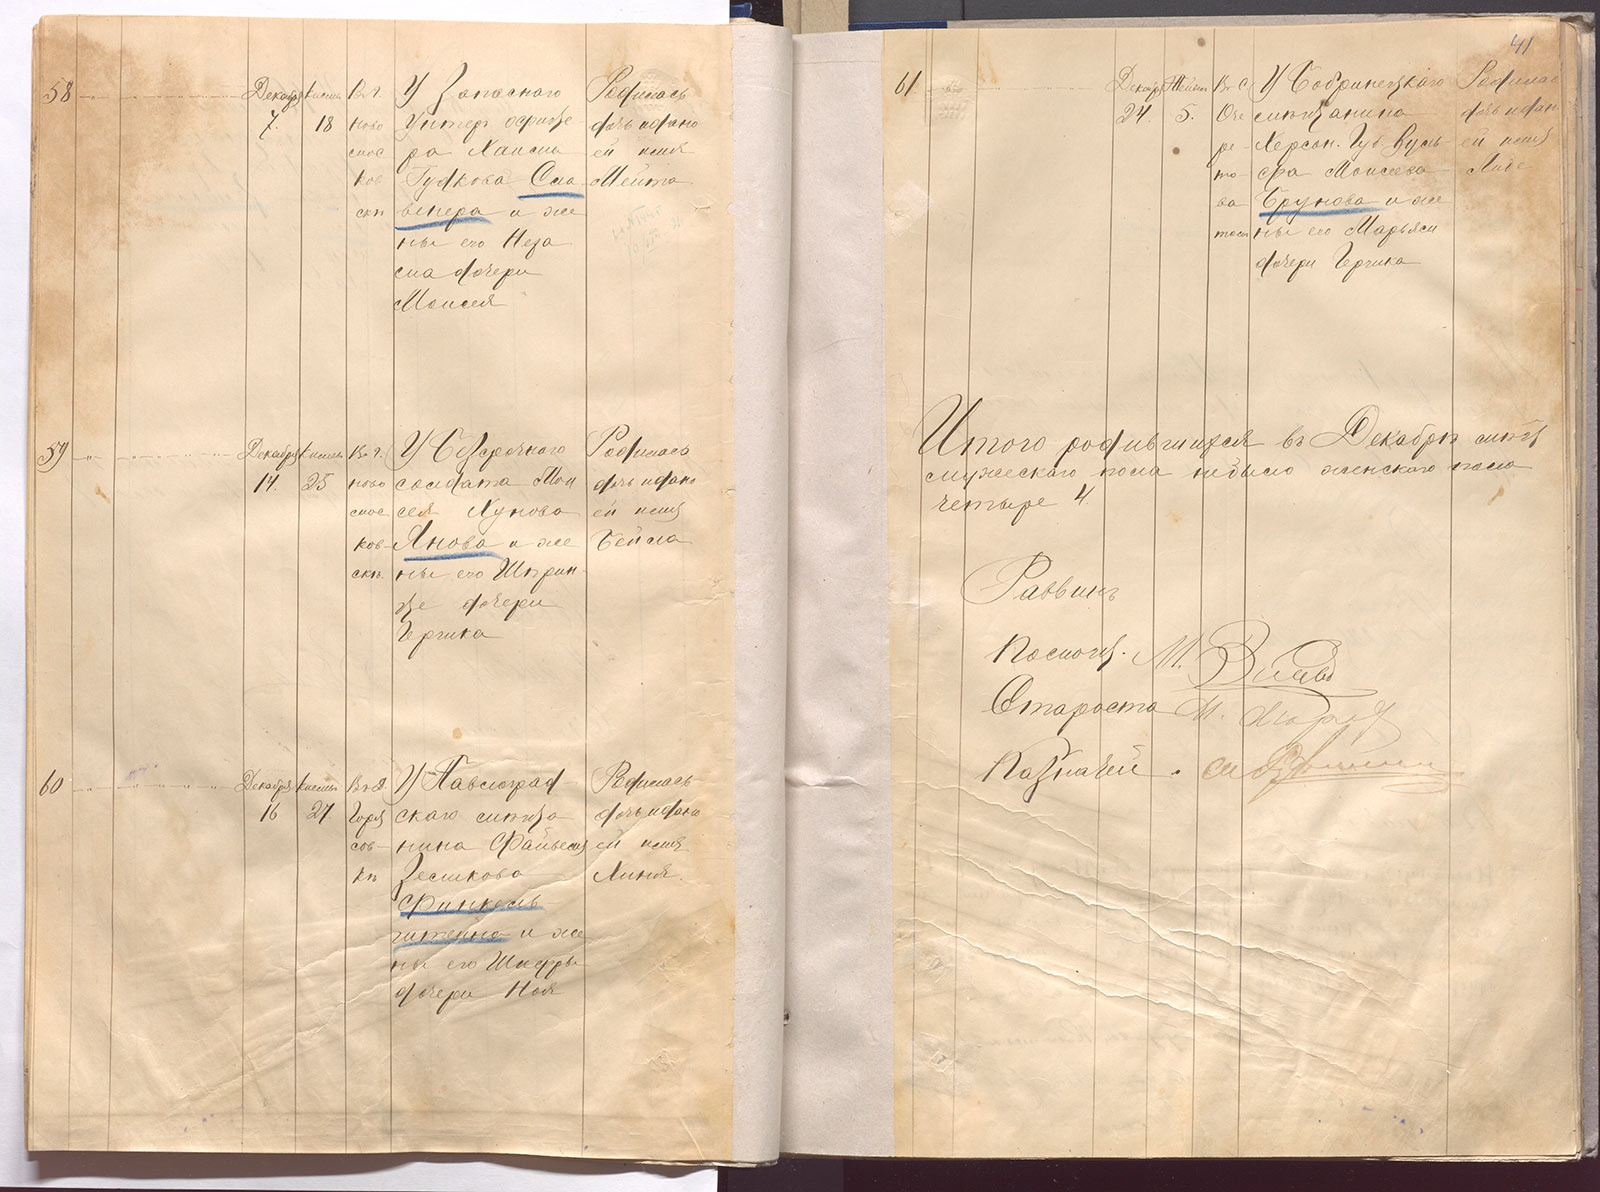 58
Декабря
7.
Кислев
18
Въ г.
Ново
мос
ков
скѣ
У Запаснаго
Унтер офице
ра Хаима
Гуткова
вкера и же
ны его Неха
ма дочери
Моисея
Родилась
дочь и дано
ей имя
Мейта
59
Декабря
14.
Кислев
25
Въ г.
Ново
мос
ков
скѣ.
У Безсрочнаго
солдата Мои
сея Хунова
Янова и же
ны его Шприн-
це дочери
Гершка
Родилась
дочь и дано
ей имя
Бейла
60
Декабря
16
Кислев
27
Въ д.
Горя
нов-
кѣ
У Павлоград
скаго мѣща
нина Файвеля
Зеликова
Финкель
штейна и же
ны его Шифры
дочери Ноя
Родилась
дочь и дано
ей имя
Хиня.
41
61
Декабря
24.
Тейвет
5.
Въ С
Оче
ре-
то-
ва
той
У Бобринецкаго
мѣщанина
Херсон. Губ. Вуль-
фа Моисеева
Брунова и же
ны его Марьяси
дочери Гершка
Родилас
дочь и дан
ей имя
Либе
Итого родившихся въ Декабрѣ мцѣ
мужескаго пола небыло женскаго пола
четыре 4
Раввинъ
Помощн. М.
Староста М.
Казначей.